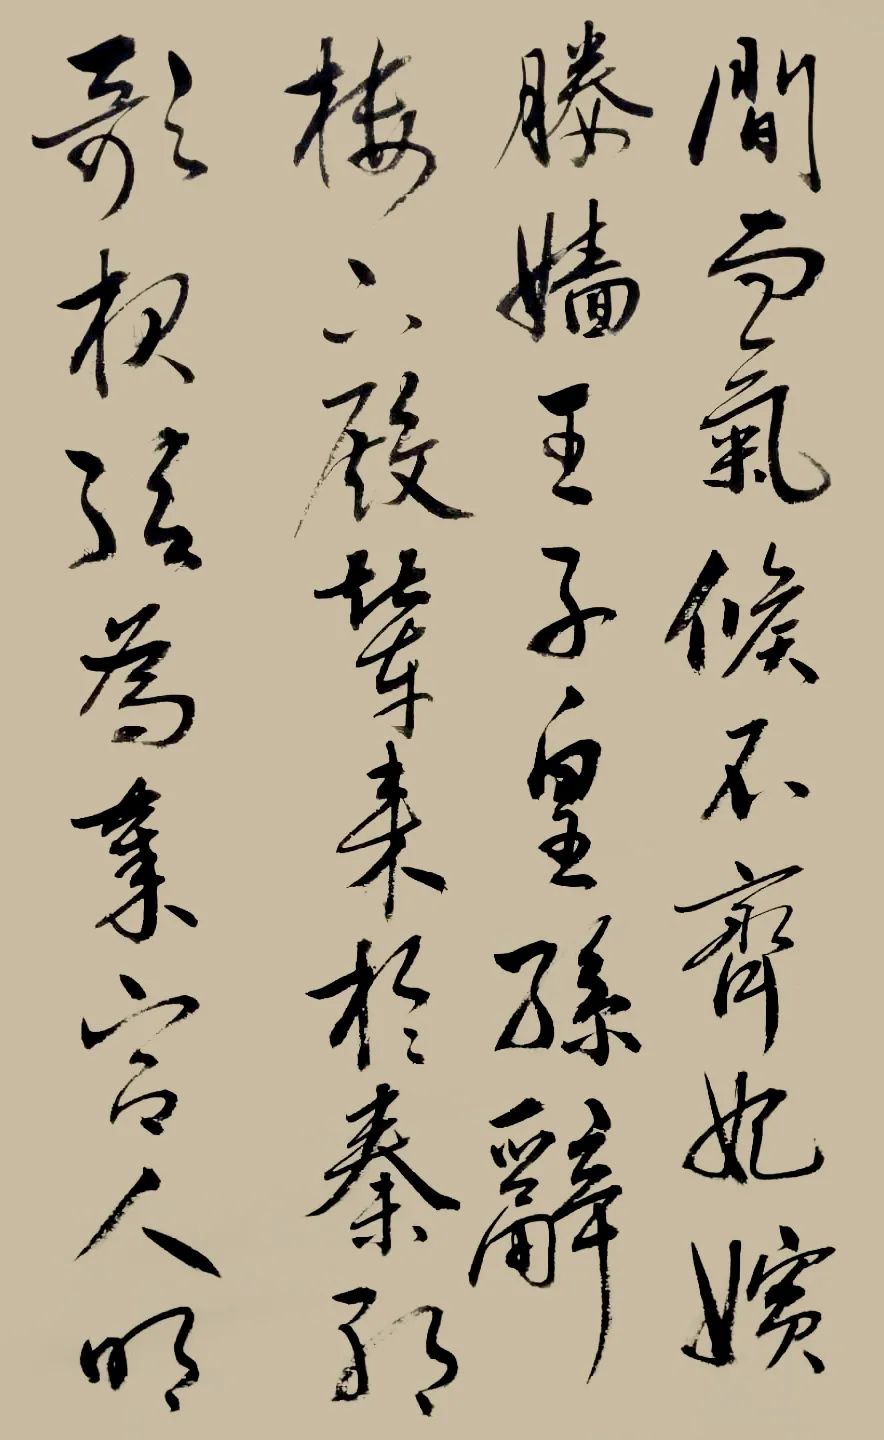 間而氣候不齊妃嬪
媵嬙王子皇孫辭
樓下殿輦來於秦朝
歌夜弦為業宮人明